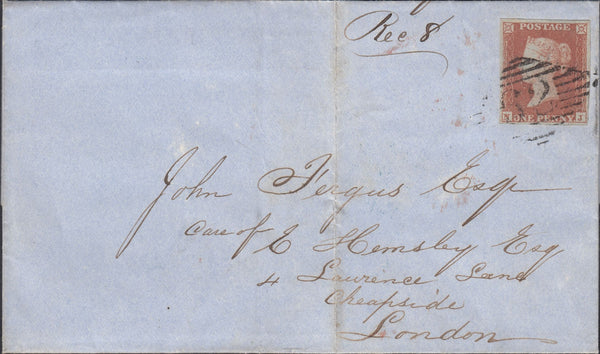 Rec 8
POSTAGE
ONE PENNY
J
John Fergus Esqr
Care of E Hemsley Esq
4 Laurence Lane
Cheapside
London